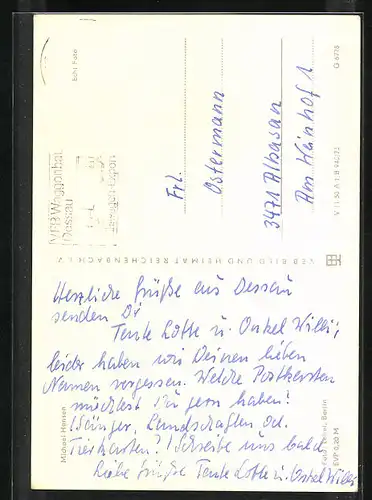 Michael Hansen
Echt Foto
VEB Waggonbau
Dessau
Frl.
Ostermann
3471 Albaxen
Am Hainhof 1
VEB BILD UND HEIMAT REICHENBACH I. V.
G 6778
Herzliche Grüße aus Dessau
senden Dir
Tante Lotte u. Onkel Willi;
leider haben wir Deinen lieben
Namen vergessen. Welche Postkarten
möchtest Du gern haben?
(Sänger, Landschaften od.
Tierkarten?) Schreibe uns bald.
Liebe Grüße Tante Lotte u. Onkel Willi
Berlin
EVP 0,20 M